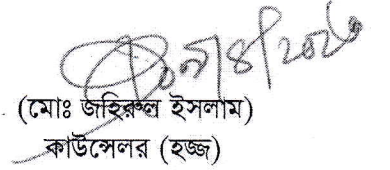 (মোঃ জহিরুল ইসলাম)
কাউন্সেলর (হজ্জ)